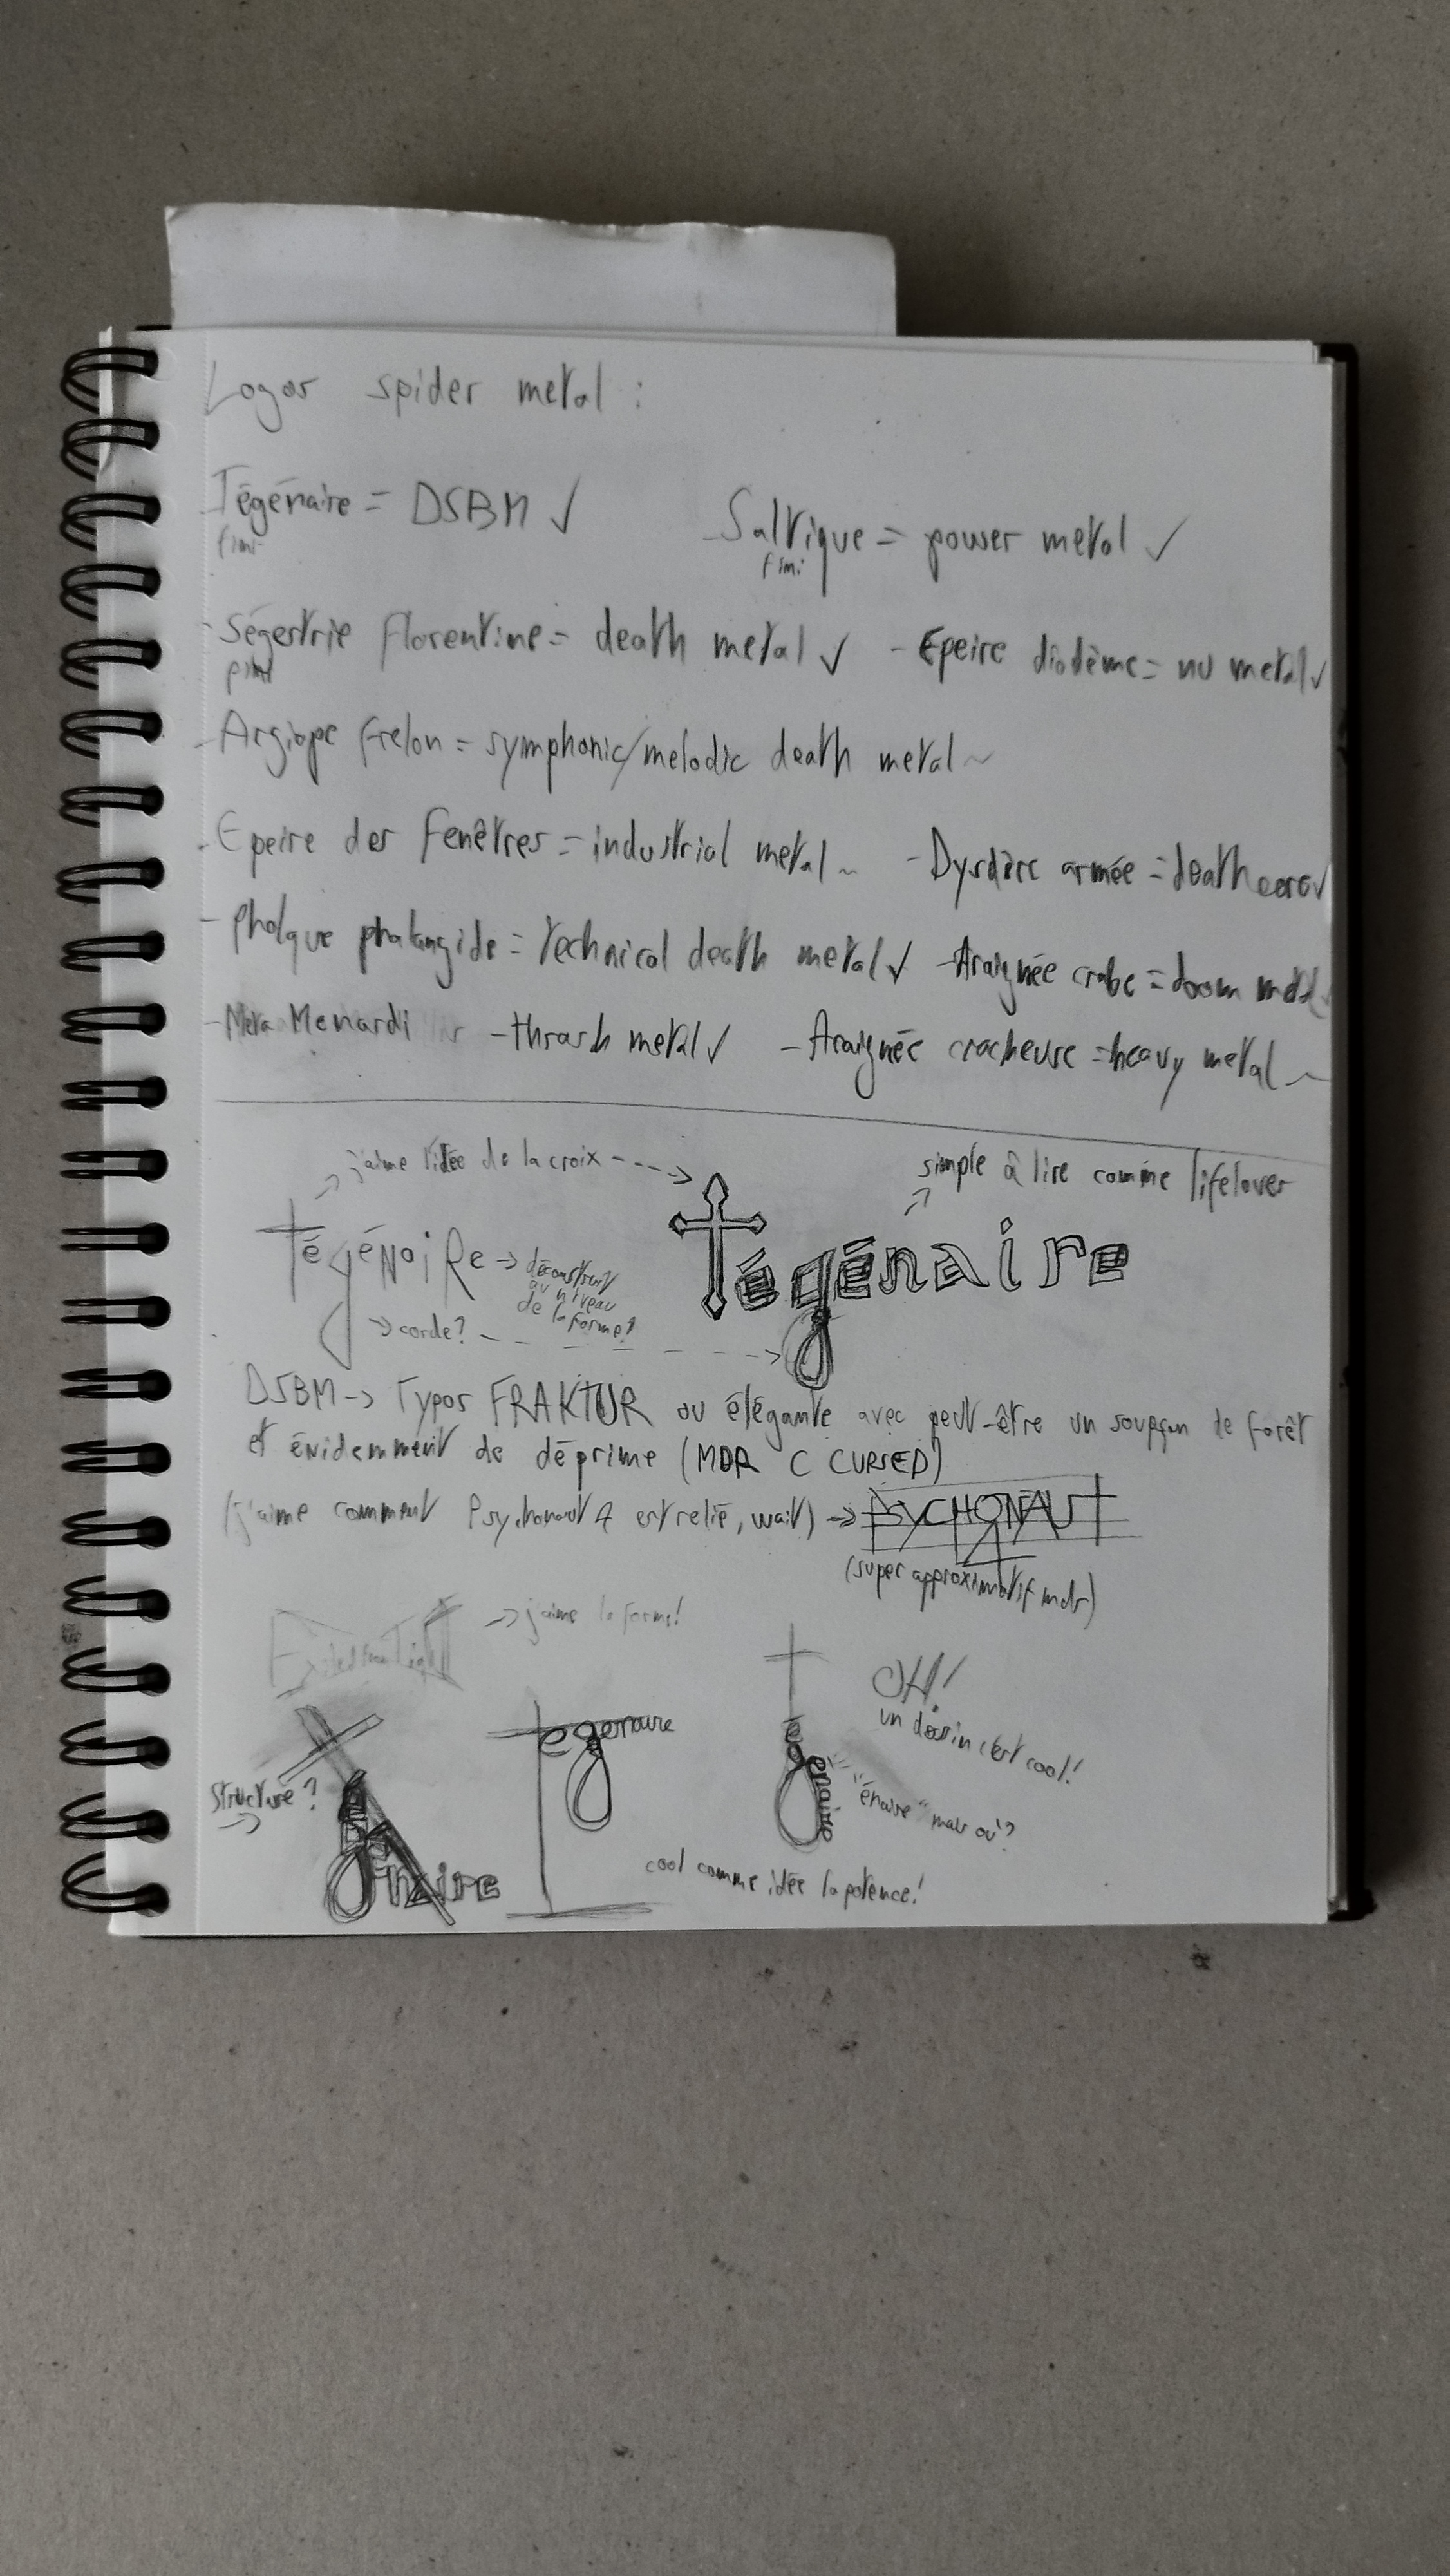 Logos spider metal :
Tégénaire = DSBM ✓
fini
Saltique = power metal ✓
fini
- Ségestrie florentine = death metal ✓
- Epeire diadème = nu metal ✓
- Argiope frelon = symphonic/melodic death metal ~
- Epeire des fenêtres = industrial metal ~
- Dysdère armée = deathcore ✓
- Pholque phalangide = technical death metal ✓
- Araignée crabe = doom metal
- Meta Menardi
- thrash metal ✓
- Araignée cracheuse = heavy metal ~
→ j'aime l'idée de la croix - - - →
simple à lire comme lifelover
TégéNaiRe → déconstruit
au niveau
de la forme?
Tégénaire
→ corde? - - - →
DSBM → Typos FRAKTUR ou élégante avec peut-être un soupçon de forêt
et évidemment de déprime (MDR C CURSED)
(j'aime comment Psychonaut 4 est relié, wait) → PSYCHONAUT
4
(super approximatif mdr)
→ j'aime la forme!
OH!
un dessin c'est cool!
Structure?
→
tégénaire
tégénaire
égenaire
"énaire" mais où?
cool comme idée la potence!